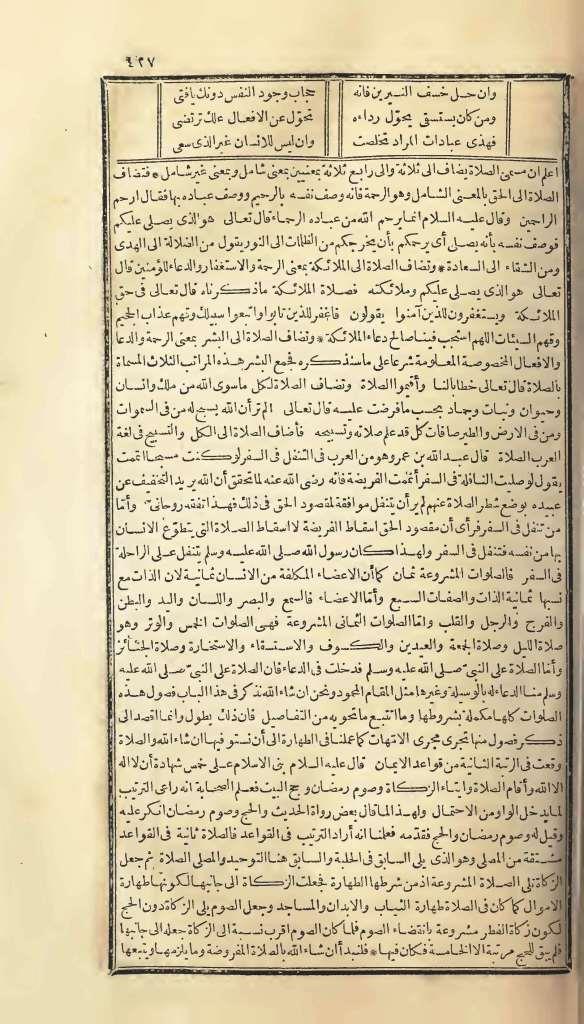 ٤٢٧
وان حل خسف النيرين فانه حجاب وجود النفس دونك يا فتى
ومن كان يستسقى يحوّل رداءه تحوّل عن الافعال علك ترتضى
فهذى عبادات المراد تخلصت وان ليس للانسان غير الذى سعى
اعلم ان مسمى الصلاة يضاف الى ثلاثة والى رابع ثلاثة بمعنيين بمعنى شامل وبمعنى غير شامل * فتضاف
الصلاة الى الحق بالمعنى الشامل وهو الرحمة فانه وصف نفسه بالرحيم ووصف عباده بها فقال ارحم
الراحمين وقال عليه السلام انما يرحم الله من عباده الرحماء قال تعالى هو الذى يصلى عليكم
فوصف نفسه بأنه يصلى أى يرحمكم بأن يخرجكم من الظلمات الى النور يقول من الضلالة الى الهدى
ومن الشقاء الى السعادة * وتضاف الصلاة الى الملائكة بمعنى الرحمة والاستغفار والدعاء للمؤمنين قال
تعالى هو الذى يصلى عليكم وملائكته فصلاة الملائكة ماذكرناه قال تعالى فى حق
الملائكة ويستغفرون للذين آمنوا يقولون فاغفر للذين تابوا واتبعوا سبيلك وقهم عذاب الجحيم
وقهم السيئات اللهم استجب فينا صالح دعاء الملائكة * وتضاف الصلاة الى البشر بمعنى الرحمة والدعاء
والافعال المخصوصة المعلومة شرعا على ماسنذكره فجمع البشر هذه المراتب الثلاث المسماة
بالصلاة قال تعالى خطابا لنا وأقيموا الصلاة وتضاف الصلاة لكل ماسوى الله من ملك وانسان
وحيوان ونبات وجماد بحسب مافرضت عليه قال تعالى الم تر أن الله يسبح له من فى السموات
ومن فى الارض والطير صافات كل قد علم صلاته وتسبيحه فأضاف الصلاة الى الكل والتسبيح فى لغة
العرب الصلاة قال عبد الله بن عمر وهو من العرب فى التنفل فى السفر لو كنت مسبحا اتممت
يقول لو صليت النافلة فى السفر أتممت الفريضة فانه رضى الله عنه لما تحقق أن الله يريد التخفيف عن
عبيده بوضع شطر الصلاة عنهم لم ير أن يتنفل موافقة لمقصود الحق فى ذلك فهذا تفقه روحانى وأما
من تنفل فى السفر فرأى أن مقصود الحق اسقاط الفريضة لا اسقاط الصلاة التى يتطوّع الانسان
بها من نفسه فتنفل فى السفر ولهذا كان رسول الله صلى الله عليه وسلم يتنفل على الراحلة
فى السفر فالصلوات المشروعة ثمان كما أن الاعضاء المكلفة من الانسان ثمانية لان الذات مع
نسبها ثمانية الذات والصفات السبع وأما الاعضاء فالسمع والبصر واللسان واليد والبطن
والفرج والرجل والقلب وامّا الصلوات الثمانى المشروعة فهى الصلوات الخمس والوتر وهو
صلاة الليل وصلاة الجمعة والعيدين والكسوف والاستسقاء والاستخارة وصلاة الجنائز
وأما الصلاة على النبىّ صلى الله عليه وسلم فدخلت فى الدعاء فان الصلاة على النبىّ صلى الله عليه
وسلم منا الدعاء له بالوسيلة وغيرها مثل المقام المحمود ونحن ان شاء الله نذكر فى هذا الباب فصول هذه
الصلوات كلها مكملة بشروطها وما اتتبع ما تحويه من التفاصيل فان ذلك يطول وانما اقصد الى
ذكر فصول منها تجرى مجرى الامّهات كما عملنا فى الطهارة الى أن نستوفيها ان شاء الله والصلاة
وقعت فى الرتبة الثانية من قواعد الايمان قال عليه السلام بنى الاسلام على خمس شهادة أن لا اله
الا الله وأقام الصلاة وايتاء الزكاة وصوم رمضان وحج البيت فعلم الصحابة انه راعى الترتيب
لما يدخل الواو من الاحتمال ولهذا لما قال بعض رواة الحديث والحج وصوم رمضان انكر عليه
وقيل له وصوم رمضان والحج فقدّمه فعلمنا انه أراد الترتيب فى القواعد فالصلاة ثانية فى القواعد
مشتقة من المصلى وهو الذى يلى السابق فى الحلبة والسابق هنا التوحيد والمصلى الصلاة ثم جعل
الزكاة تلى الصلاة المشروعة اذ من شرطها الطهارة فجعلت الزكاة الى جانبها لكونها طهارة
الاموال كما كان فى الصلاة طهارة الثياب والابدان والمساجد وجعل الصوم يلى الزكاة دون الحج
لكون زكاة الفطر مشروعة بانقضاء الصوم فلما كان الصوم اقرب نسبة الى الزكاة جعله الى جانبها
فلم يبق للحج مرتبة الا الخامسة فكان فيها * فلنبدأ ان شاء الله بالصلاة المفروضة وما يلزمها ويتبعها